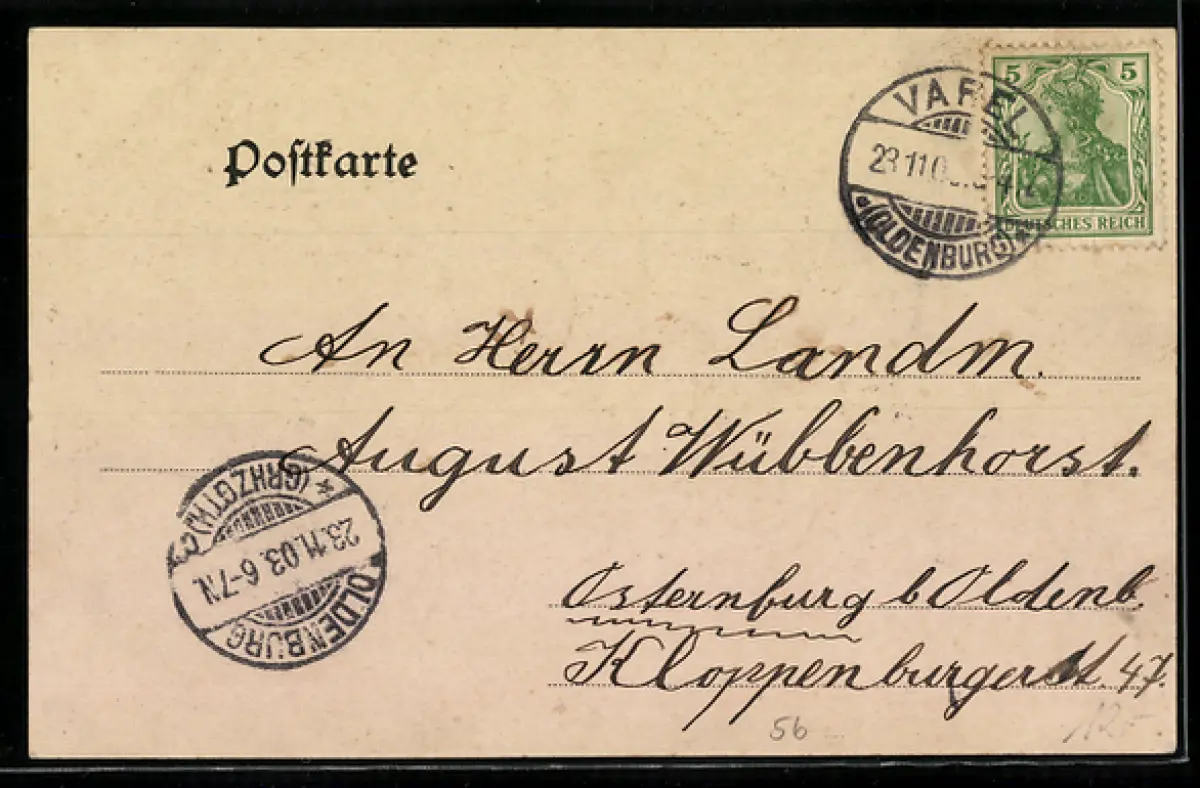 Postkarte
VAREL
23.11.0
(OLDENBURG)*
5 5
DEUTSCHES REICH
An Herrn Landm.
August Wübbenhorst.
* (GRHZGTM) C
23.11.03. 6-7N.
OLDENBURG
Osternburg b Oldenb.
Kloppenburgerst. 47.
56